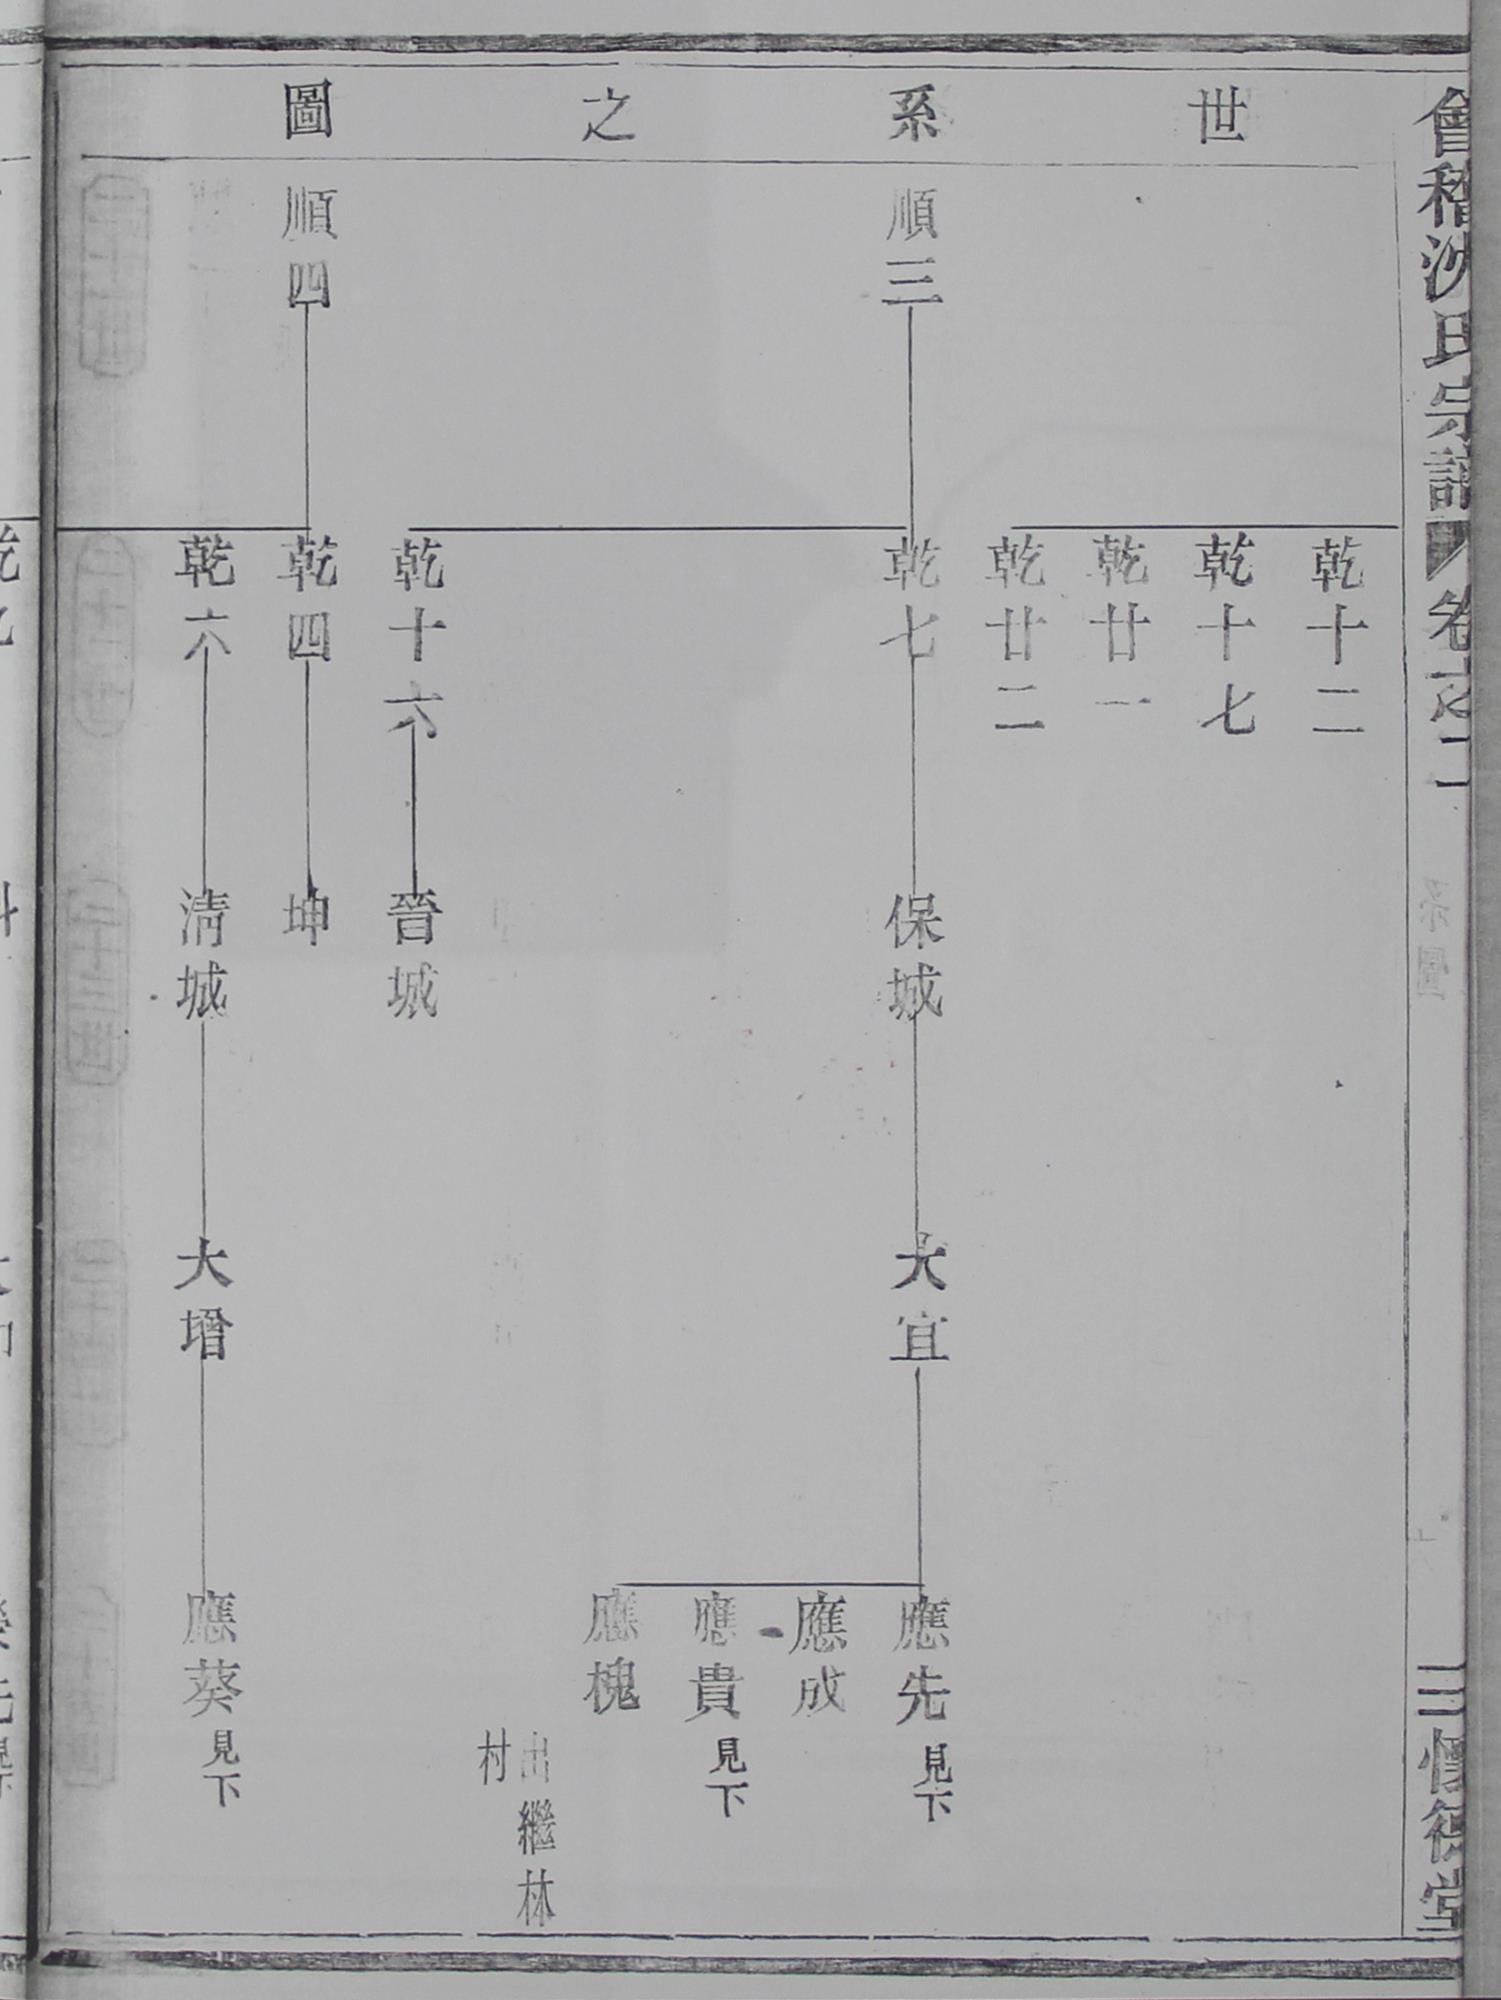 會稽沈氏宗譜 卷之二
三 懷德堂
世系之圖
乾十二
乾十七
乾廿一
乾廿二
順三
乾七
保城
大宜
應先 見下
應成
應貴 見下
應槐
出繼林
村
乾十六
晉城
順四
乾四
坤
乾六
淸城
大增
應葵 見下